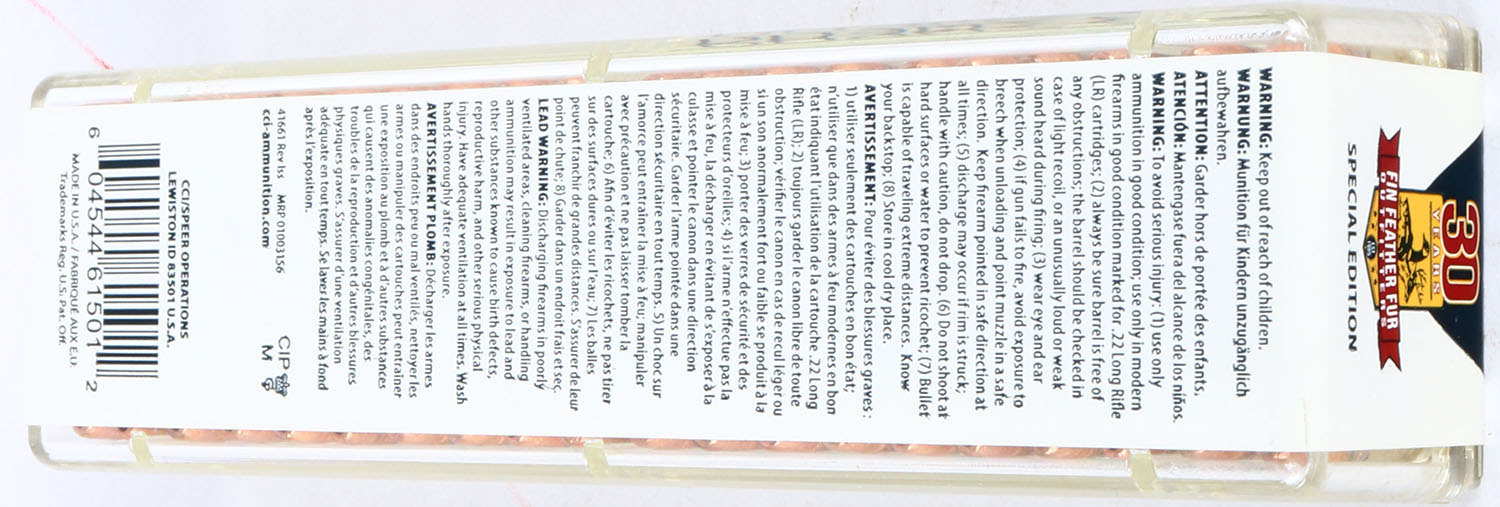 30
YEARS
FIN FEATHER FUR
OUTFITTERS
SPECIAL EDITION
WARNING: Keep out of reach of children.
WARNUNG: Munition für Kindern unzugänglich
aufbewahren.
ATTENTION: Garder hors de portée des enfants.
ATENCIÓN: Mantengase fuera del alcance de los niños.
WARNING: To avoid serious injury: (1) use only
ammunition in good condition; use only in modern
firearms in good condition marked for .22 Long Rifle
(LR) cartridges; (2) always be sure barrel is free of
any obstructions; the barrel should be checked in
case of light recoil, or an unusually loud or weak
sound heard during firing; (3) wear eye and ear
protection; (4) if gun fails to fire, avoid exposure to
breech when unloading and point muzzle in a safe
direction. Keep firearm pointed in safe direction at
all times; (5) discharge may occur if rim is struck;
handle with caution, do not drop. (6) Do not shoot at
hard surfaces or water to prevent ricochet; (7) Bullet
is capable of traveling extreme distances. Know
your backstop; (8) Store in cool dry place.
AVERTISSEMENT: Pour éviter des blessures graves :
1) utiliser seulement des cartouches en bon état;
n'utiliser que dans des armes à feu modernes en bon
état indiquant l'utilisation de la cartouche .22 Long
Rifle (LR); 2) toujours garder le canon libre de toute
obstruction; vérifier le canon en cas de recul léger ou
si un son anormalement fort ou faible se produit à la
mise à feu; 3) porter des verres de sécurité et des
protecteurs d'oreilles; 4) si l'arme n'effectue pas la
mise à feu, la décharger en évitant de s'exposer à la
culasse et pointer le canon dans une direction
sécuritaire. Garder l'arme pointée dans une
direction sécuritaire en tout temps. 5) Un choc sur
l'amorce peut entraîner la mise à feu; manipuler
avec précaution et ne pas laisser tomber la
cartouche; 6) Afin d'éviter les ricochets, ne pas tirer
sur des surfaces dures ou sur l'eau; 7) Les balles
peuvent franchir de grandes distances. S'assurer de leur
point de chute; 8) Garder dans un endroit frais et sec.
LEAD WARNING: Discharging firearms in poorly
ventilated areas, cleaning firearms, or handling
ammunition may result in exposure to lead and
other substances known to cause birth defects,
reproductive harm, and other serious physical
injury. Have adequate ventilation at all times. Wash
hands thoroughly after exposure.
AVERTISSEMENT PLOMB: Décharger les armes
dans des endroits peu ou mal ventilés, nettoyer les
armes ou manipuler des cartouches peut entraîner
une exposition au plomb et à d'autres substances
qui causent des anomalies congénitales, des
troubles de la reproduction et d'autres blessures
physiques graves. S'assurer d'une ventilation
adéquate en tout temps. Se laver les mains à fond
après l'exposition.
41661 Rev Iss MRP 01003156
cci-ammunition.com
CIP
M
CCI/SPEER OPERATIONS
LEWISTON ID 83501 U.S.A.
6 04544 61501 2
MADE IN U.S.A. / FABRIQUÉ AUX É.U.
Trademarks Reg. U.S. Pat. Off.